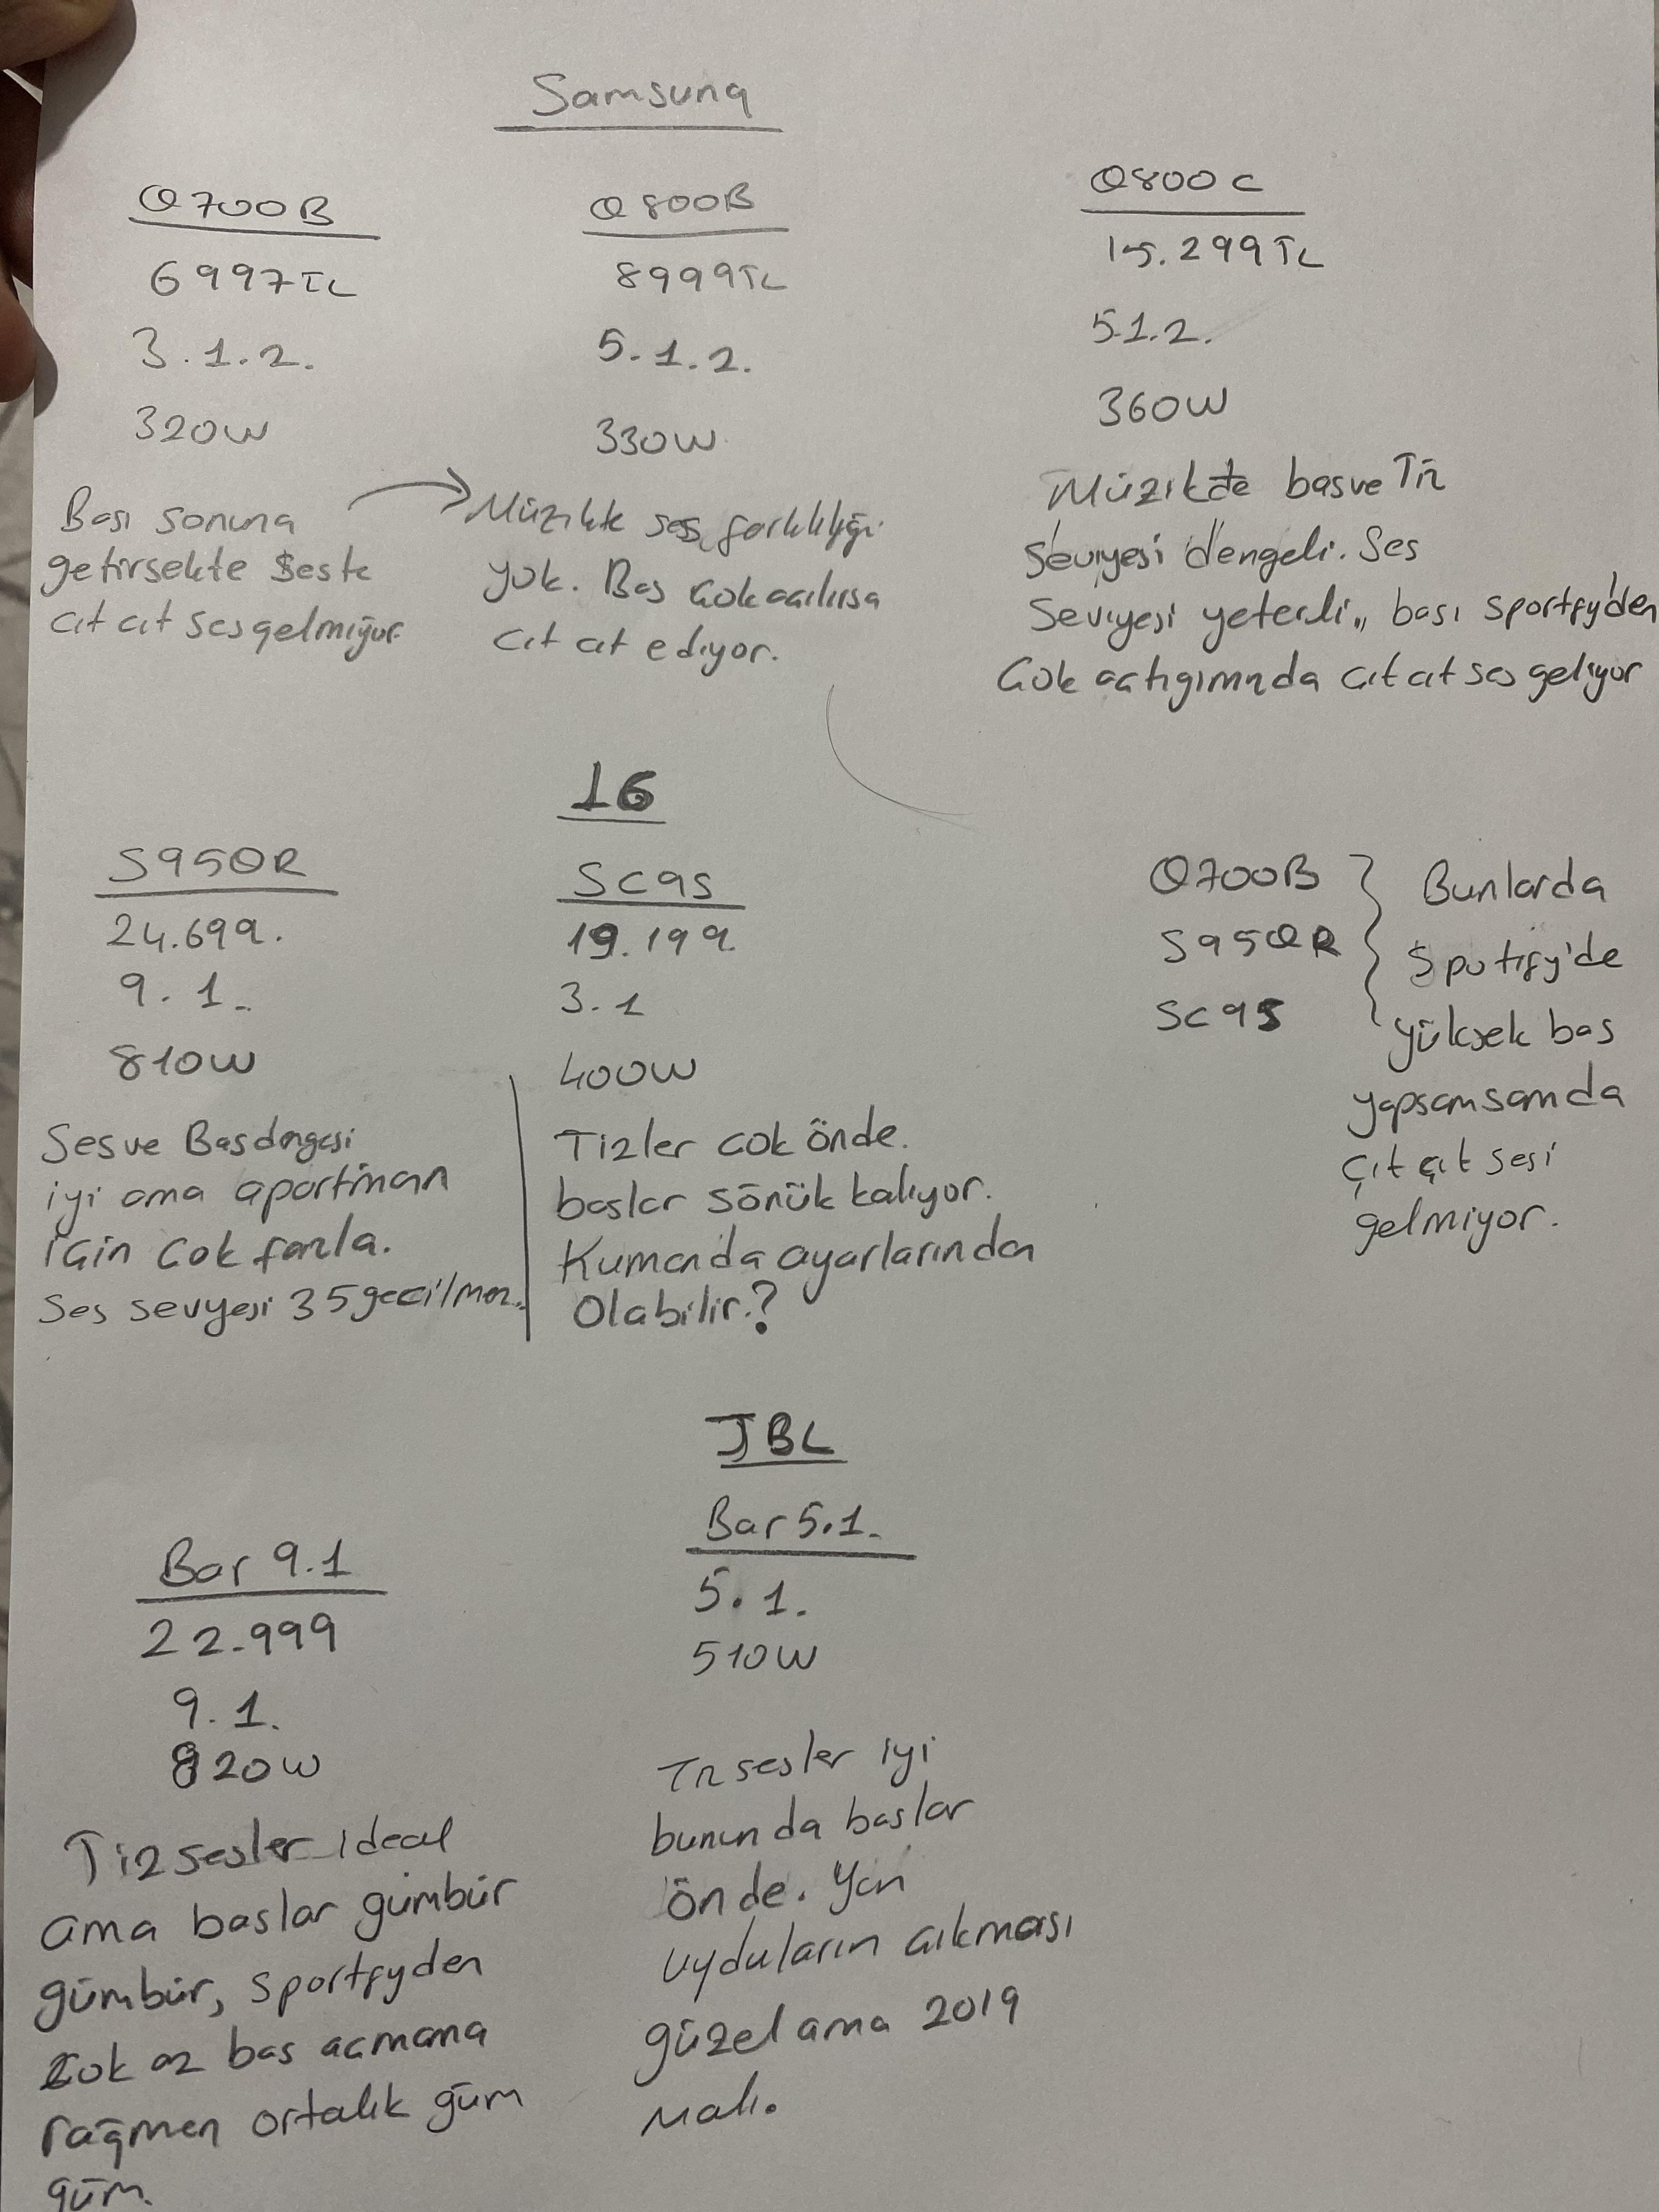 Samsung
Q700B
6997TL
3.1.2.
320W
Bası sonuna
getirsekte seste
cıt cıt ses gelmiyor
Q800B
8999TL
5.1.2.
330W
Müzikte ses farklılığı
yok. Bas çok açılırsa
cıt cıt ediyor.
Q800C
15.299TL
5.1.2.
360W
Müzikte bas ve Tiz
Seviyesi dengeli. Ses
Seviyesi yeterli,, bası sportfy'den
Çok actıgımızda cıt cıt ses geliyor
16
S95QR
24.699.
9.1.
810W
Ses ve Bas dengesi
iyi ama apartman
için çok fazla.
Ses seviyesi 35 geçilmez.
SC9S
19.199
3.1
400W
Tizler cok önde.
baslar sönük kalıyor.
Kumanda ayarlarından
Olabilir.?
Q700B
S95QR
SC9S
Bunlarda
Spotify'de
yüksek bas
yapsamsamda
çıt çıt sesi
gelmiyor.
JBL
Bar 9.1
22.999
9.1.
820W
Tiz sesler ideal
ama baslar gümbür
gümbür, sportfyden
Çok az bas acmama
rağmen ortalık güm
güm.
Bar 5.1.
5.1.
510W
Tiz sesler iyi
bununda baslar
önde. Yan
uyduların çıkması
güzel ama 2019
Malı.